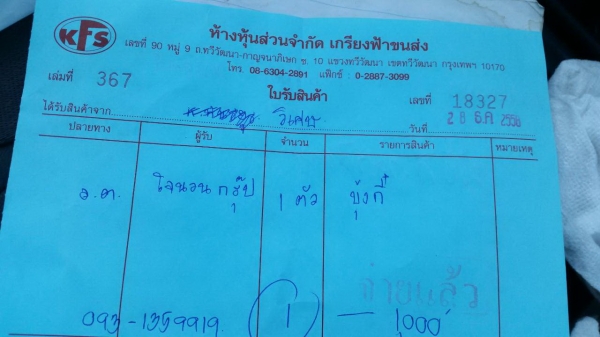 KFS
ห้างหุ้นส่วนจำกัด เกรียงฟ้าขนส่ง
เลขที่ 90 หมู่ 9 ถ.ทวีวัฒนา-กาญจนาภิเษก ซ. 10 แขวงทวีวัฒนา เขตทวีวัฒนา กรุงเทพฯ 10170
โทร 08-6304-2891 แฟ็กซ์ : 0-2887-3099
เล่มที่ 367
ใบรับสินค้า
เลขที่ 18327
ได้รับสินค้าจาก วิเศษ
วันที่ 28 ธ.ค. 2556
ปลายทาง ผู้รับ จำนวน รายการสินค้า หมายเหตุ
1 ตัว บุ้งกี๋
จ่ายแล้ว
093-1359919 1 — 1,000